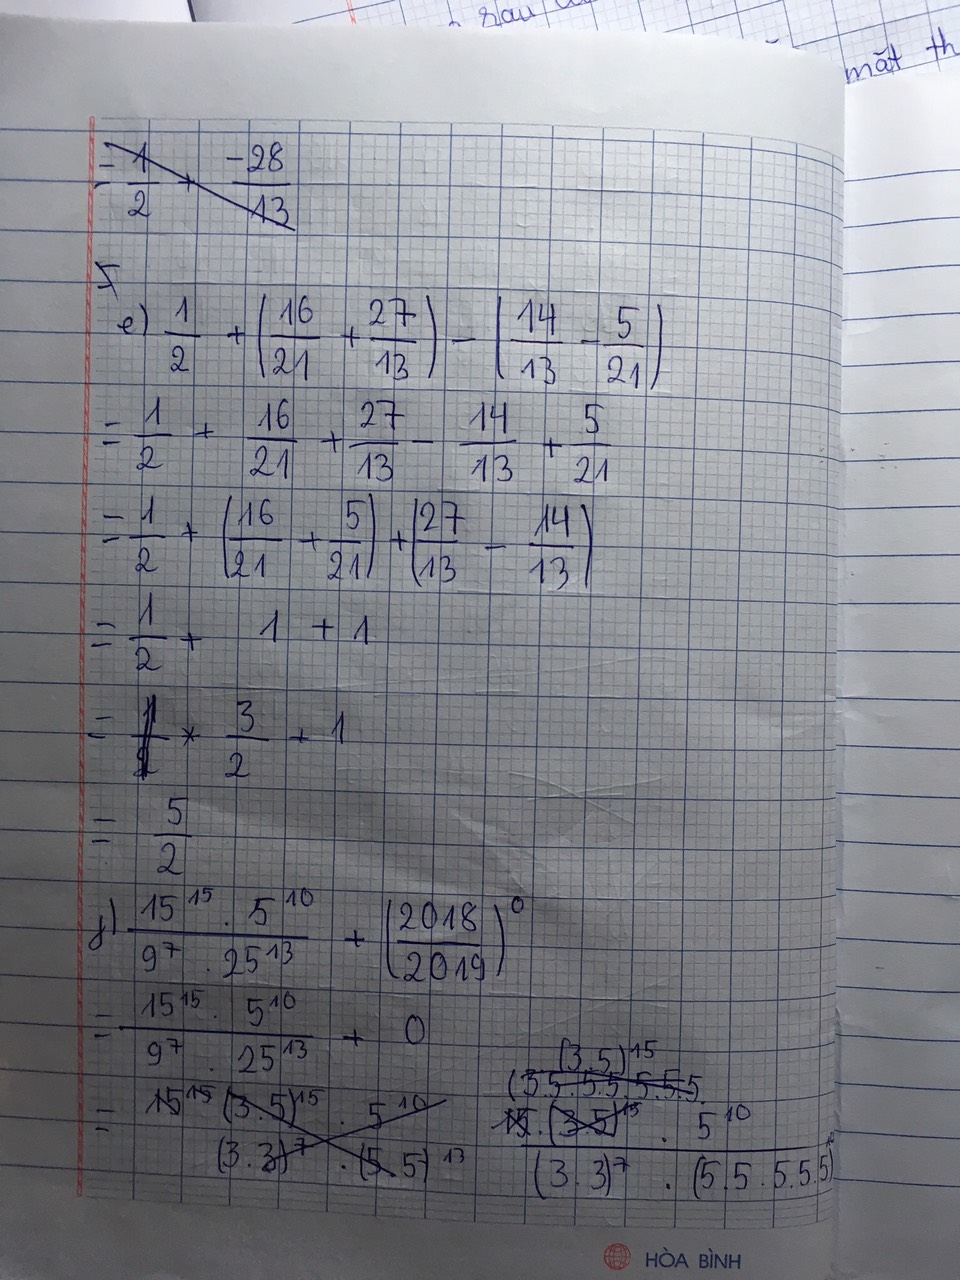 sau
mắt th
= 1/2 + -28/13
5
e) 1/2 + (16/21 + 27/13) - (14/13 - 5/21)
= 1/2 + 16/21 + 27/13 - 14/13 + 5/21
= 1/2 + (16/21 + 5/21) + (27/13 - 14/13)
= 1/2 + 1 + 1
= 3/2 + 1
= 5/2
f) 15^15 . 5^10 / 9^7 . 25^13 + (2018/2019)^0
= 15^15 . 5^10 / 9^7 . 25^13 + 0
(3.5)^15
(3.5.5.5.5.5.5.5.
= 15^15 (3.5)^15 . 5^10 / (3.3)^7 . (5.5)^13
15.(3.5)^15 . 5^10 / (3.3)^7 . (5.5.5.5.5)
HÒA BÌNH